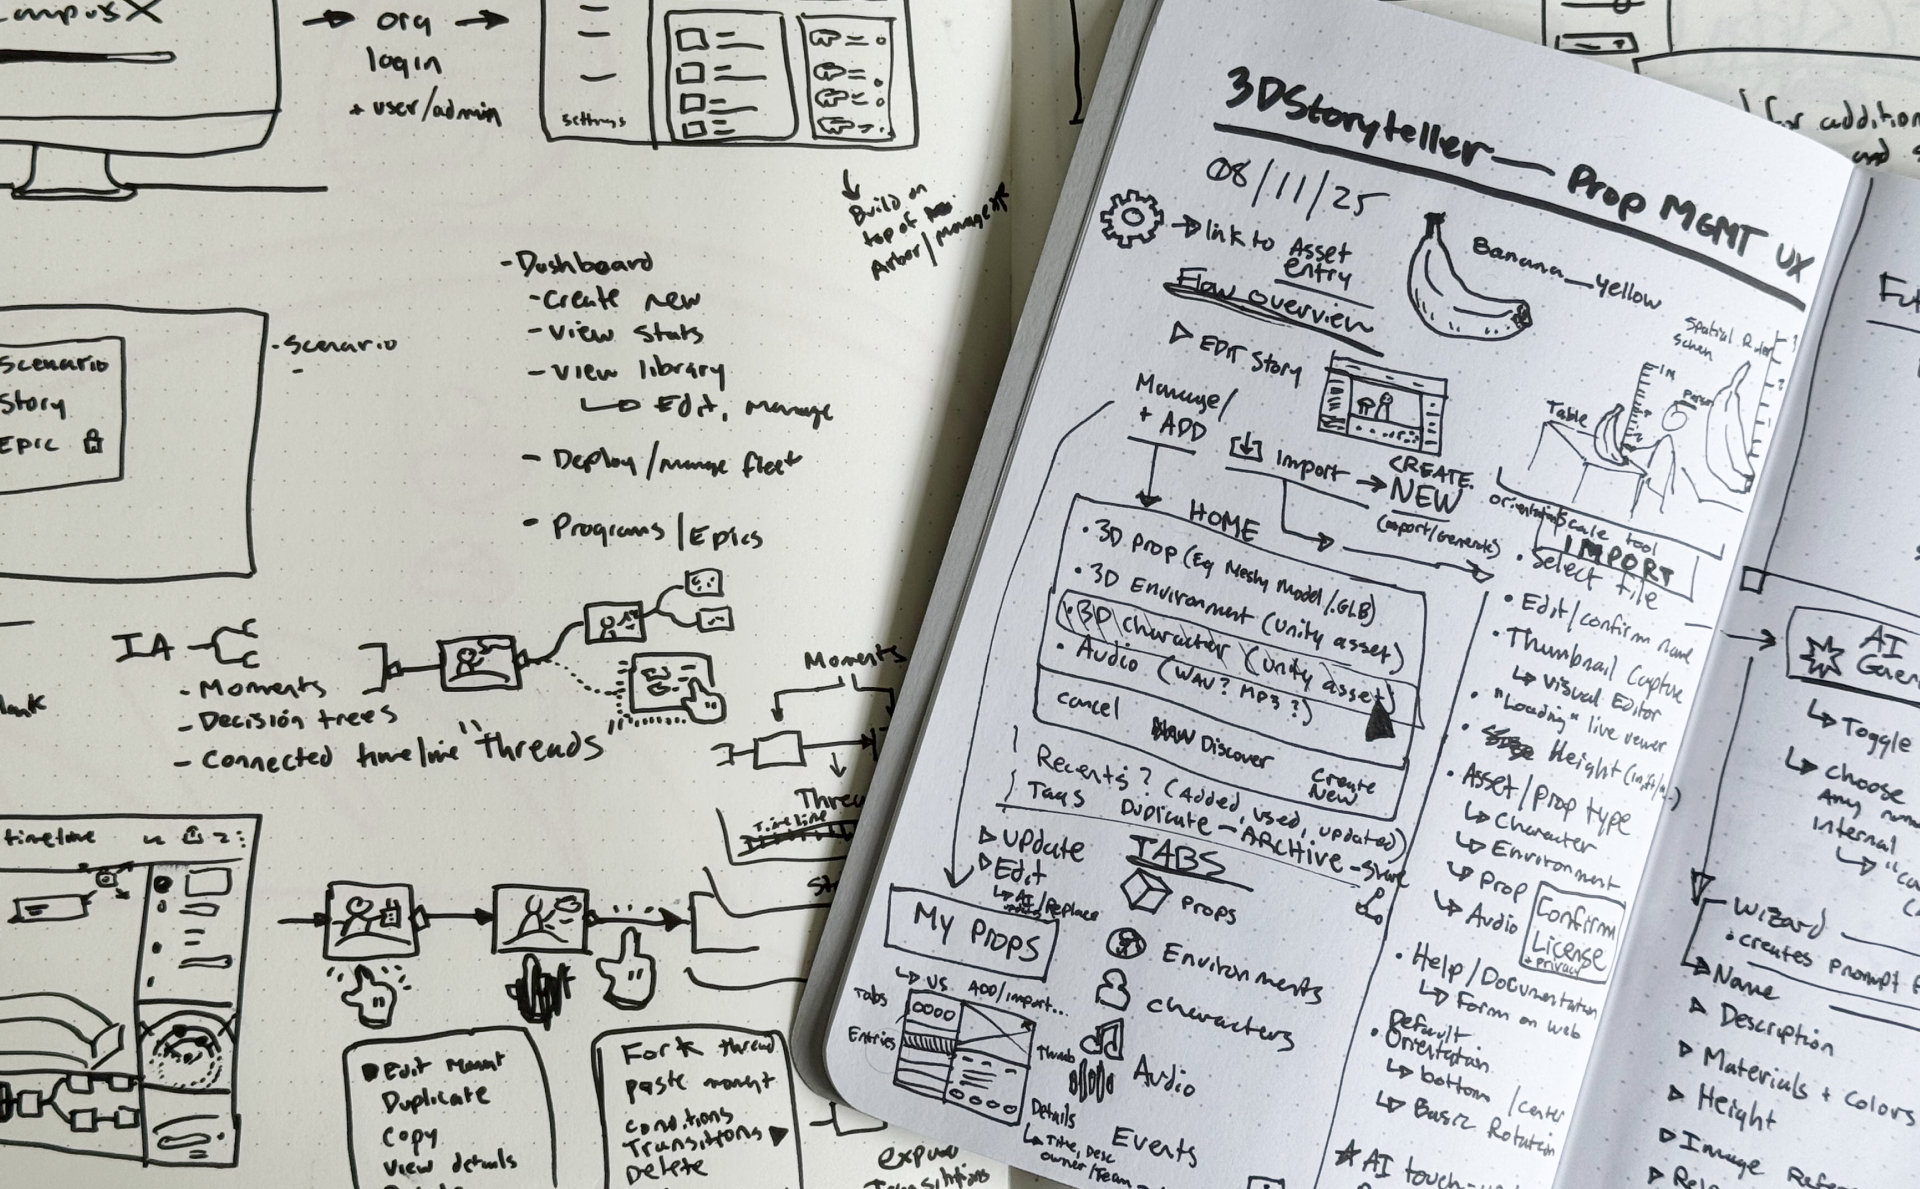 ampusX
org
login
+ user/admin
settings
Build on
top of
Arbor/Management
- Dashboard
- Create new
- View stats
- View library
Edit, manage
- Deploy/manage fleet
- Programs/Epics
- Scenario
-
Scenario
Story
Epic
IA
- Moments
- Decision trees
- Connected timeline "threads"
Moments
Timeline
timeline
Edit moment
Duplicate
Copy
View details
Fork thread
Paste moment
Conditions
Transitions
Delete
expose
Transitions
for addition
and
3DStoryteller — Prop MGMT UX
08/11/25
link to Asset
entry
Banana_yellow
Flow overview
EDIT Story
Manage/
+ ADD
Import
CREATE
NEW
(import/generate)
Spatial Ruler
1m
Person
Table
orientation/Scale tool
HOME
• 3D prop (Eg Meshy Model/.GLB)
• 3D Environment (Unity asset)
• 3D character (Unity asset)
• Audio (WAV? MP3?)
cancel
Discover
Create
New
Recents? (Added, used, updated)
Tags
Duplicate - ARCHive - Share
Update
Edit
AI/Replace
My Props
ADD/import...
Tabs
Entries
Thumb
Details
Title, Desc
owner/Team
TABS
Props
Environments
Characters
Audio
Events
IMPORT
• Select file
• Edit/confirm name
• Thumbnail Capture
Visual Editor
• "Loading" live viewer
• Height
• Asset/prop type
Character
Environment
Prop
Audio
Confirm
License
+ privacy
• Help/Documentation
Form on web
Default
• Orientation
bottom/center
Basic Rotation
AI touch-up
AI
Toggle
choose
Any
internal
Wizard
• creates prompt
Name
Description
Materials + colors
Height
Image